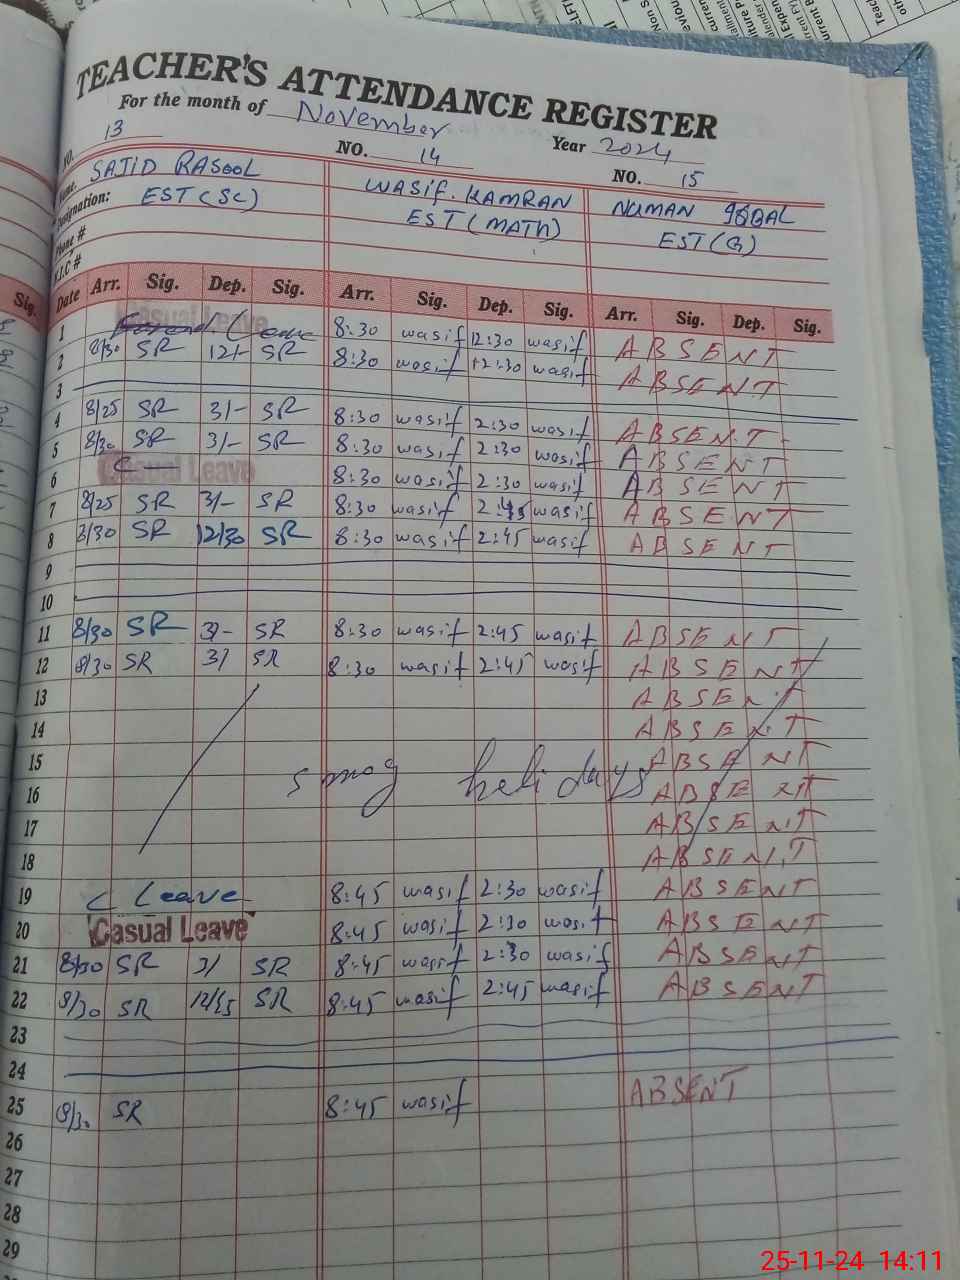 TEACHER'S ATTENDANCE REGISTER
For the month of November Year 2024
NO. 13 NO. 14 NO. 15
Name. SAJID RASOOL WASIF. KAMRAN NUMAN IQBAL
Designation: EST (SC) EST (MATH) EST (G)
Phone #
N.I.C #
Date Arr. Sig. Dep. Sig. Arr. Sig. Dep. Sig. Arr. Sig. Dep. Sig.
1 Casual Leave Leave 8:30 wasif 12:30 wasif ABSENT
2 8/30 SR 12/- SR 8:30 wasif 12:30 wasif ABSENT
3
4 8/25 SR 3/- SR 8:30 wasif 2:30 wasif ABSENT
5 8/30 SR 3/- SR 8:30 wasif 2:30 wasif ABSENT
6 Casual Leave 8:30 wasif 2:30 wasif ABSENT
7 8/25 SR 3/- SR 8:30 wasif 2:45 wasif ABSENT
8 8/30 SR 12/30 SR 8:30 wasif 2:45 wasif ABSENT
9
10
11 8/30 SR 3/- SR 8:30 wasif 2:45 wasif ABSENT
12 8/30 SR 3/ SR 8:30 wasif 2:45 wasif ABSENT
13 ABSENT
14 ABSENT
15 smog holidays ABSENT
16 ABSENT
17 ABSENT
18 ABSENT
19 C Leave 8:45 wasif 2:30 wasif ABSENT
20 Casual Leave 8:45 wasif 2:30 wasif ABSENT
21 8/30 SR 3/ SR 8:45 wasif 2:30 wasif ABSENT
22 8/30 SR 12/ SR 8:45 wasif 2:45 wasif ABSENT
23
24
25 8/30 SR 8:45 wasif ABSENT
26
27
28
29
25-11-24 14:11